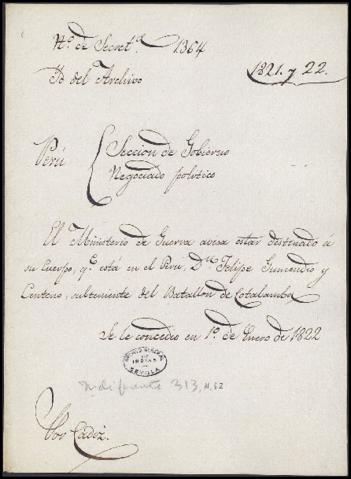 N.º de Secret.ª 1364
Yd del Archivo
1821. y 22.
Perú
Seccion de Gobierno
Negociado político
El Ministerio de Guerra avisa estar destinado á
su Cuerpo, q.e está en el Perú, D.n Felipe Sumendio y
Centeno, subteniente del Batallon de Cotabamba
Se le concedio en 1.º de Enero de 1822
ARCHIVO GENERAL
DE
INDIAS
SEVILLA
Indiferente 313, N. 62
Cadiz.